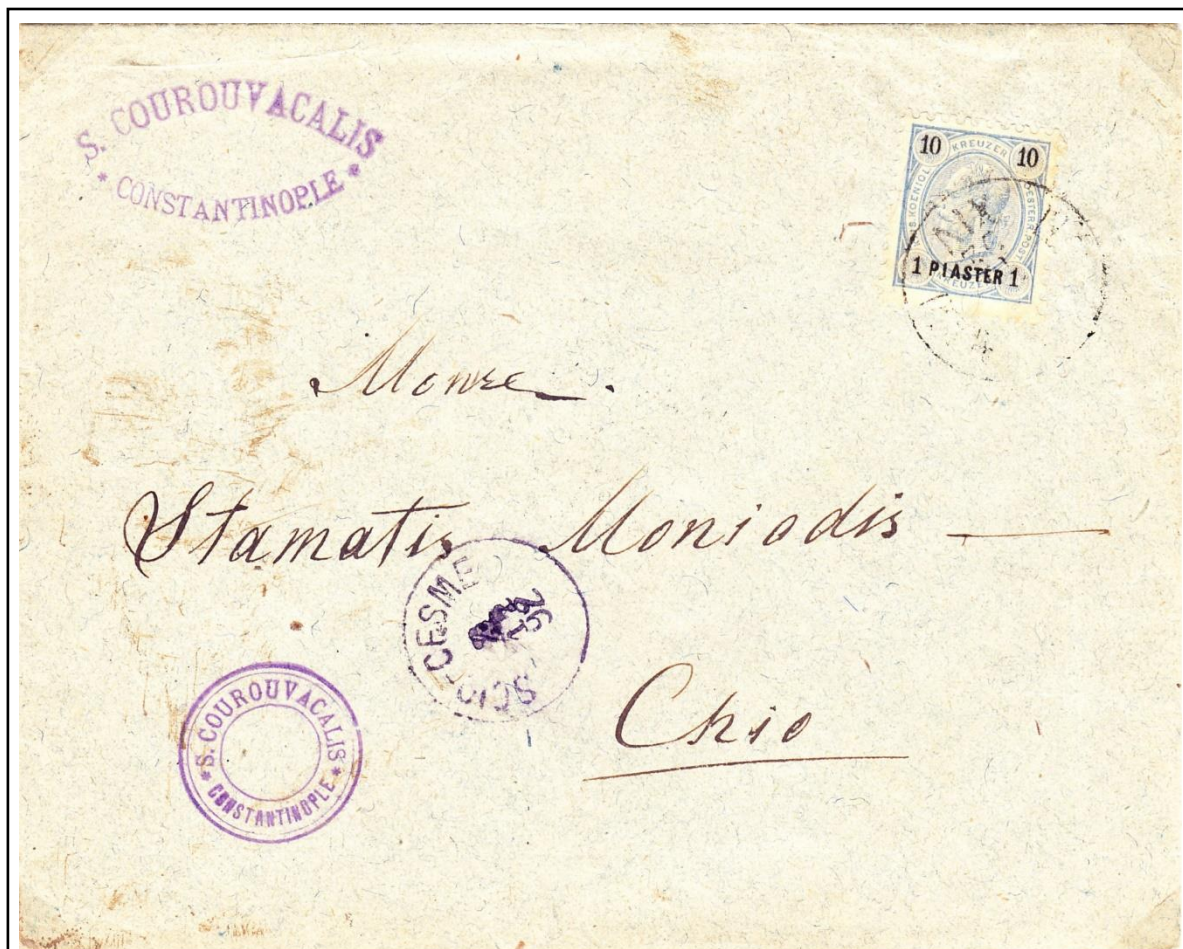 S. COUROUVACALIS
* CONSTANTINOPLE *
10 KREUZER 10
1 PIASTER 1
Stamatis Moniadis
SCIO-CESME
Chio
* S. COUROUVACALIS *
CONSTANTINOPLE